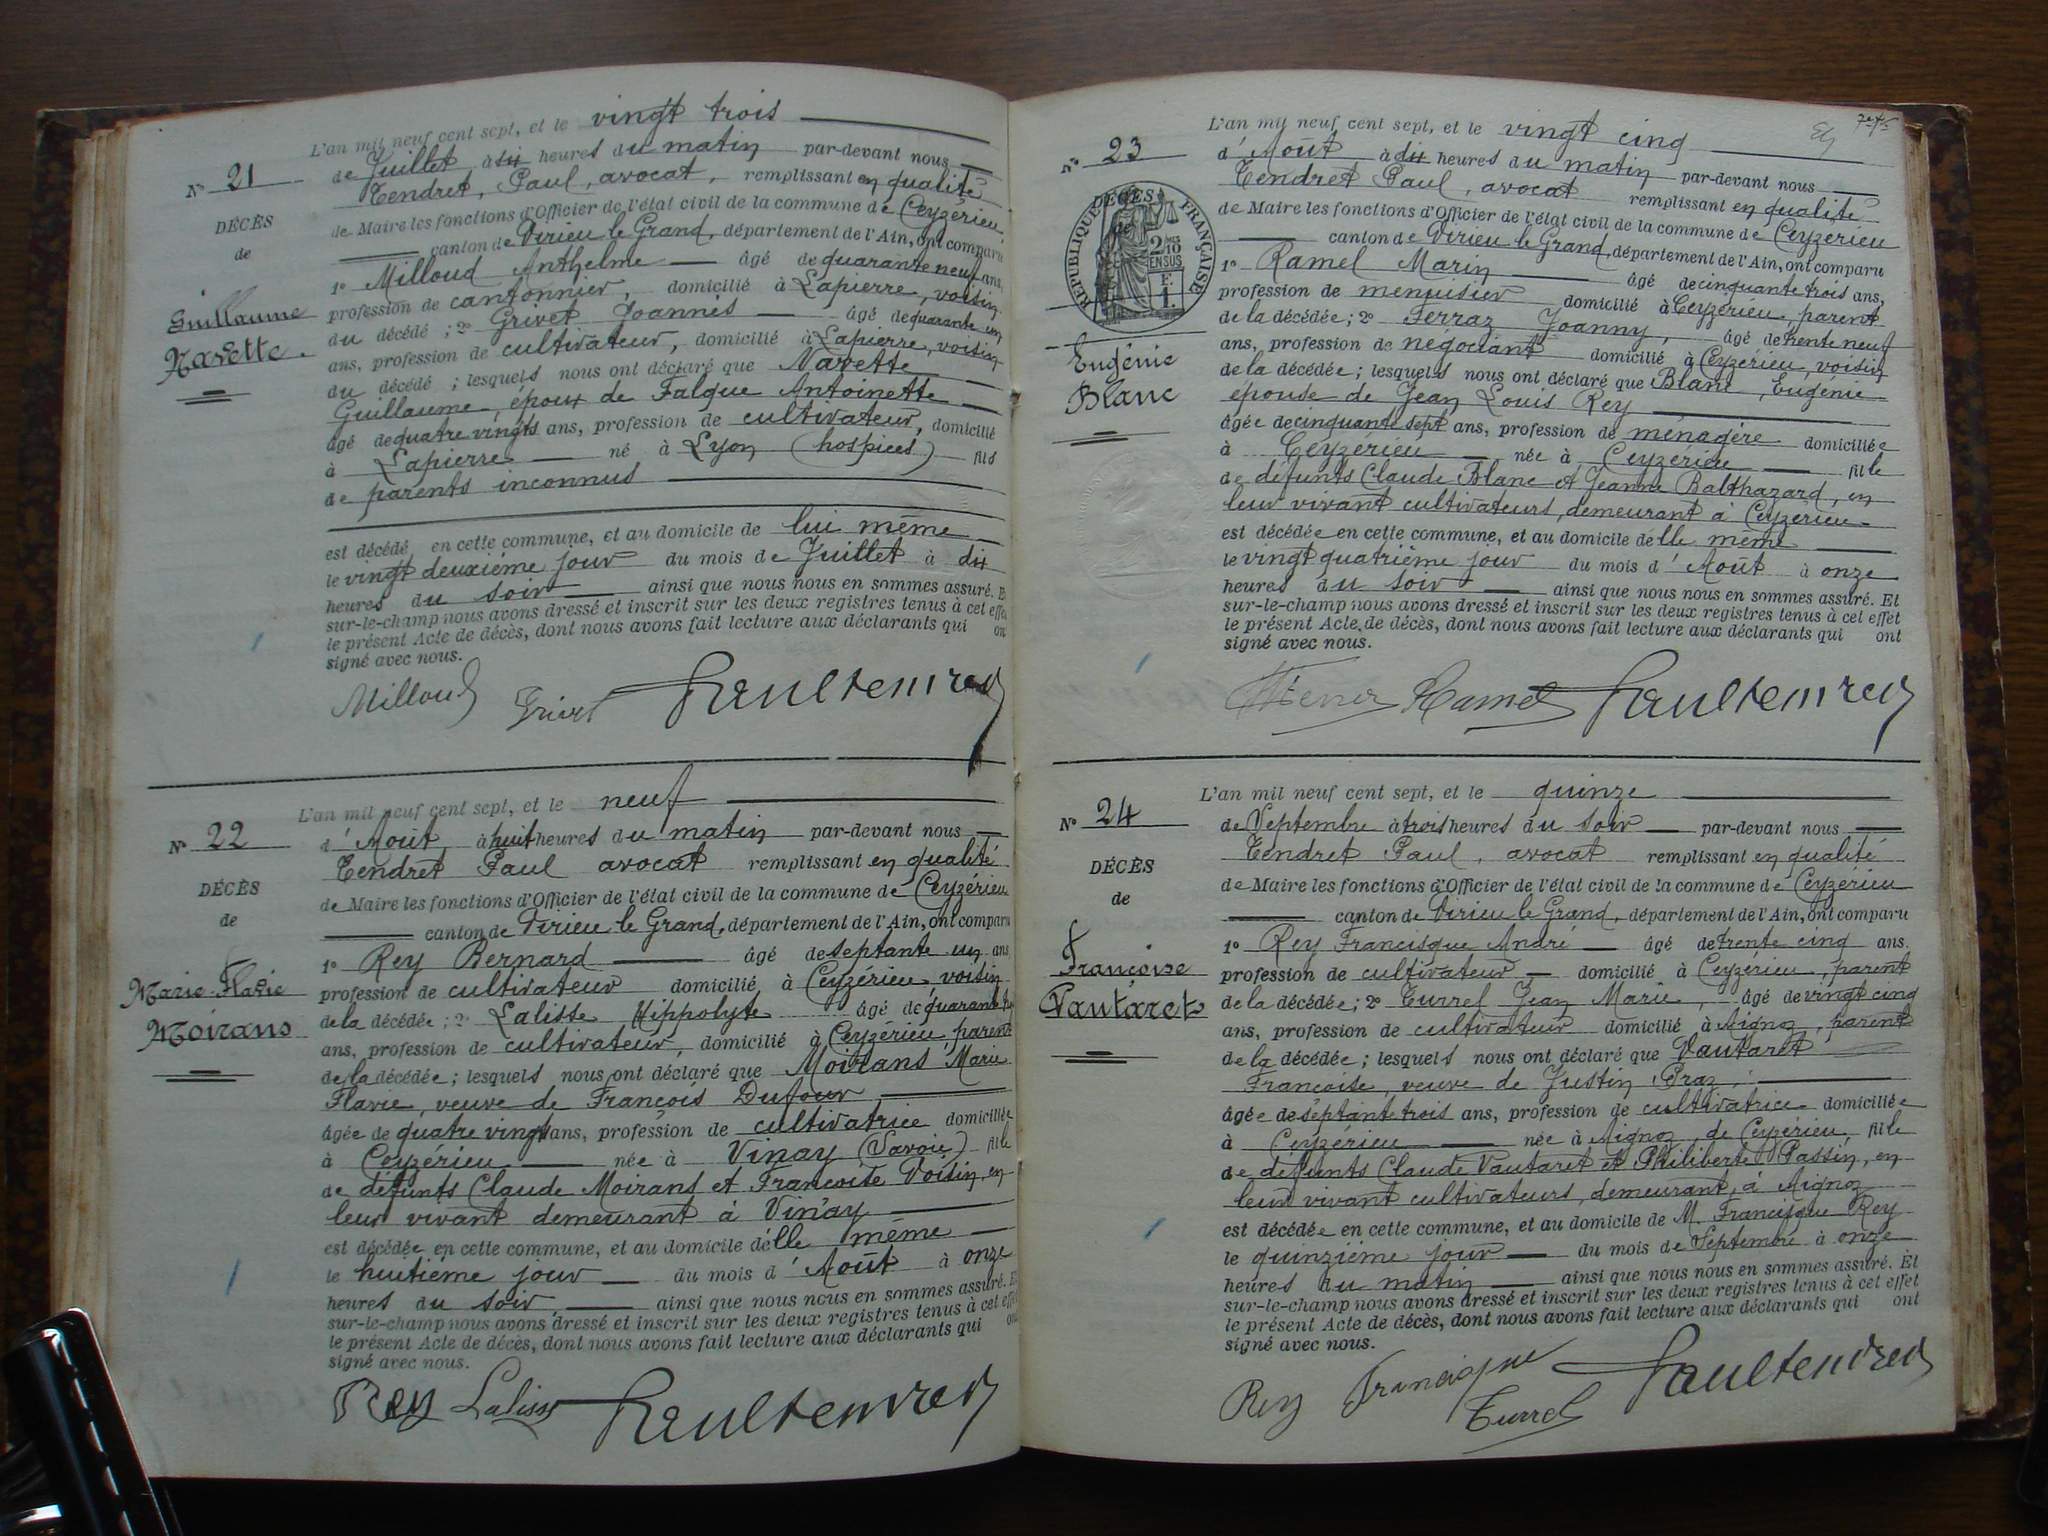 L'an mil neuf cent sept, et le vingt trois
de Juillet à dix heures du matin par-devant nous
Tendret, Paul, avocat, remplissant en qualité
de Maire les fonctions d'Officier de l'état civil de la commune de Ceyzérieu,
canton de Virieu le Grand, département de l'Ain, ont comparu
1º Milloud Anthelme âgé de quarante neuf ans,
profession de cantonnier, domicilié à Lapierre, voisin
du décédé ; 2º Grivet Joannès âgé de quarante un
ans, profession de cultivateur, domicilié à Lapierre, voisin
du décédé ; lesquels nous ont déclaré que Navette
Guillaume, époux de Falque Antoinette
âgé de quatre vingts ans, profession de cultivateur, domicilié
à Lapierre né à Lyon (hospices) fils
de parents inconnus
est décédé en cette commune, et au domicile de lui même
le vingt deuxième jour du mois de Juillet à dix
heures du soir ainsi que nous nous en sommes assuré. Et
sur-le-champ nous avons dressé et inscrit sur les deux registres tenus à cet effet
le présent Acte de décès, dont nous avons fait lecture aux déclarants qui ont
signé avec nous.
Nº 21
DÉCÈS
de
Guillaume
Navette
Milloud Grivet Paul Tendret
L'an mil neuf cent sept, et le neuf
d'Août à huit heures du matin par-devant nous
Tendret Paul avocat remplissant en qualité
de Maire les fonctions d'Officier de l'état civil de la commune de Ceyzérieu
canton de Virieu le Grand, département de l'Ain, ont comparu
1º Rey Bernard âgé de septante un ans
profession de cultivateur domicilié à Ceyzérieu, voisin
de la décédée ; 2º Lalisse Hippolyte âgé de quarante
ans, profession de cultivateur, domicilié à Ceyzérieu, parent
de la décédée ; lesquels nous ont déclaré que Moirans Marie
Flavie, veuve de François Dufour
âgée de quatre vingts ans, profession de cultivatrice domiciliée
à Ceyzérieu née à Vinay (Savoie) fille
de défunts Claude Moirans et Françoise Voisin, en
leur vivant demeurant à Vinay
est décédée en cette commune, et au domicile d'elle même
le huitième jour du mois d'Août à onze
heures du soir, ainsi que nous nous en sommes assuré. Et
sur-le-champ nous avons dressé et inscrit sur les deux registres tenus à cet effet
le présent Acte de décès, dont nous avons fait lecture aux déclarants qui ont
signé avec nous.
Nº 22
DÉCÈS
de
Marie Flavie
Moirans
Rey Lalisse Paul Tendret
L'an mil neuf cent sept, et le vingt cinq
d'Août à dix heures du matin par-devant nous
Tendret Paul, avocat remplissant en qualité
de Maire les fonctions d'Officier de l'état civil de la commune de Ceyzérieu
canton de Virieu le Grand, département de l'Ain, ont comparu
1º Ramel Marin âgé de cinquante trois ans,
profession de menuisier domicilié à Ceyzérieu, parent
de la décédée ; 2º Ferraz Joanny, âgé de trente neuf
ans, profession de négociant domicilié à Ceyzérieu, voisin
de la décédée ; lesquels nous ont déclaré que Blanc, Eugénie
épouse de Jean Louis Rey
âgée de cinquante sept ans, profession de ménagère domiciliée
à Ceyzérieu née à Ceyzérieu fille
de défunts Claude Blanc et Jeanne Balthazard, en
leur vivant cultivateurs, demeurant à Ceyzérieu
est décédée en cette commune, et au domicile d'elle même
le vingt quatrième jour du mois d'Août à onze
heures du soir ainsi que nous nous en sommes assuré. Et
sur-le-champ nous avons dressé et inscrit sur les deux registres tenus à cet effet
le présent Acte de décès, dont nous avons fait lecture aux déclarants qui ont
signé avec nous.
Nº 23
DÉCÈS
de
RÉPUBLIQUE FRANÇAISE
2/10
EN SUS
Eugénie
Blanc
Ramel Paul Tendret
L'an mil neuf cent sept, et le quinze
de Septembre à trois heures du soir par-devant nous
Tendret Paul, avocat remplissant en qualité
de Maire les fonctions d'Officier de l'état civil de la commune de Ceyzérieu
canton de Virieu le Grand, département de l'Ain, ont comparu
1º Rey Francisque André âgé de trente cinq ans.
profession de cultivateur domicilié à Ceyzérieu, parent
de la décédée ; 2º Turrel Jean Marie, âgé de vingt cinq
ans, profession de cultivateur domicilié à Aignoz, parent
de la décédée ; lesquels nous ont déclaré que Vautaret
Françoise, veuve de Justin Praz,
âgée de septante trois ans, profession de cultivatrice domiciliée
à Ceyzérieu née à Aignoz, de Ceyzerieu, fille
de défunts Claude Vautaret et Philiberte Passin, en
leur vivant cultivateurs, demeurant à Aignoz
est décédée en cette commune, et au domicile de M. Francisque Rey
le quinzième jour du mois de Septembre à onze
heures du matin ainsi que nous nous en sommes assuré. Et
sur-le-champ nous avons dressé et inscrit sur les deux registres tenus à cet effet
le présent Acte de décès, dont nous avons fait lecture aux déclarants qui ont
signé avec nous.
Nº 24
DÉCÈS
de
Françoise
Vautaret
Rey Francisque Turrel Paul Tendret